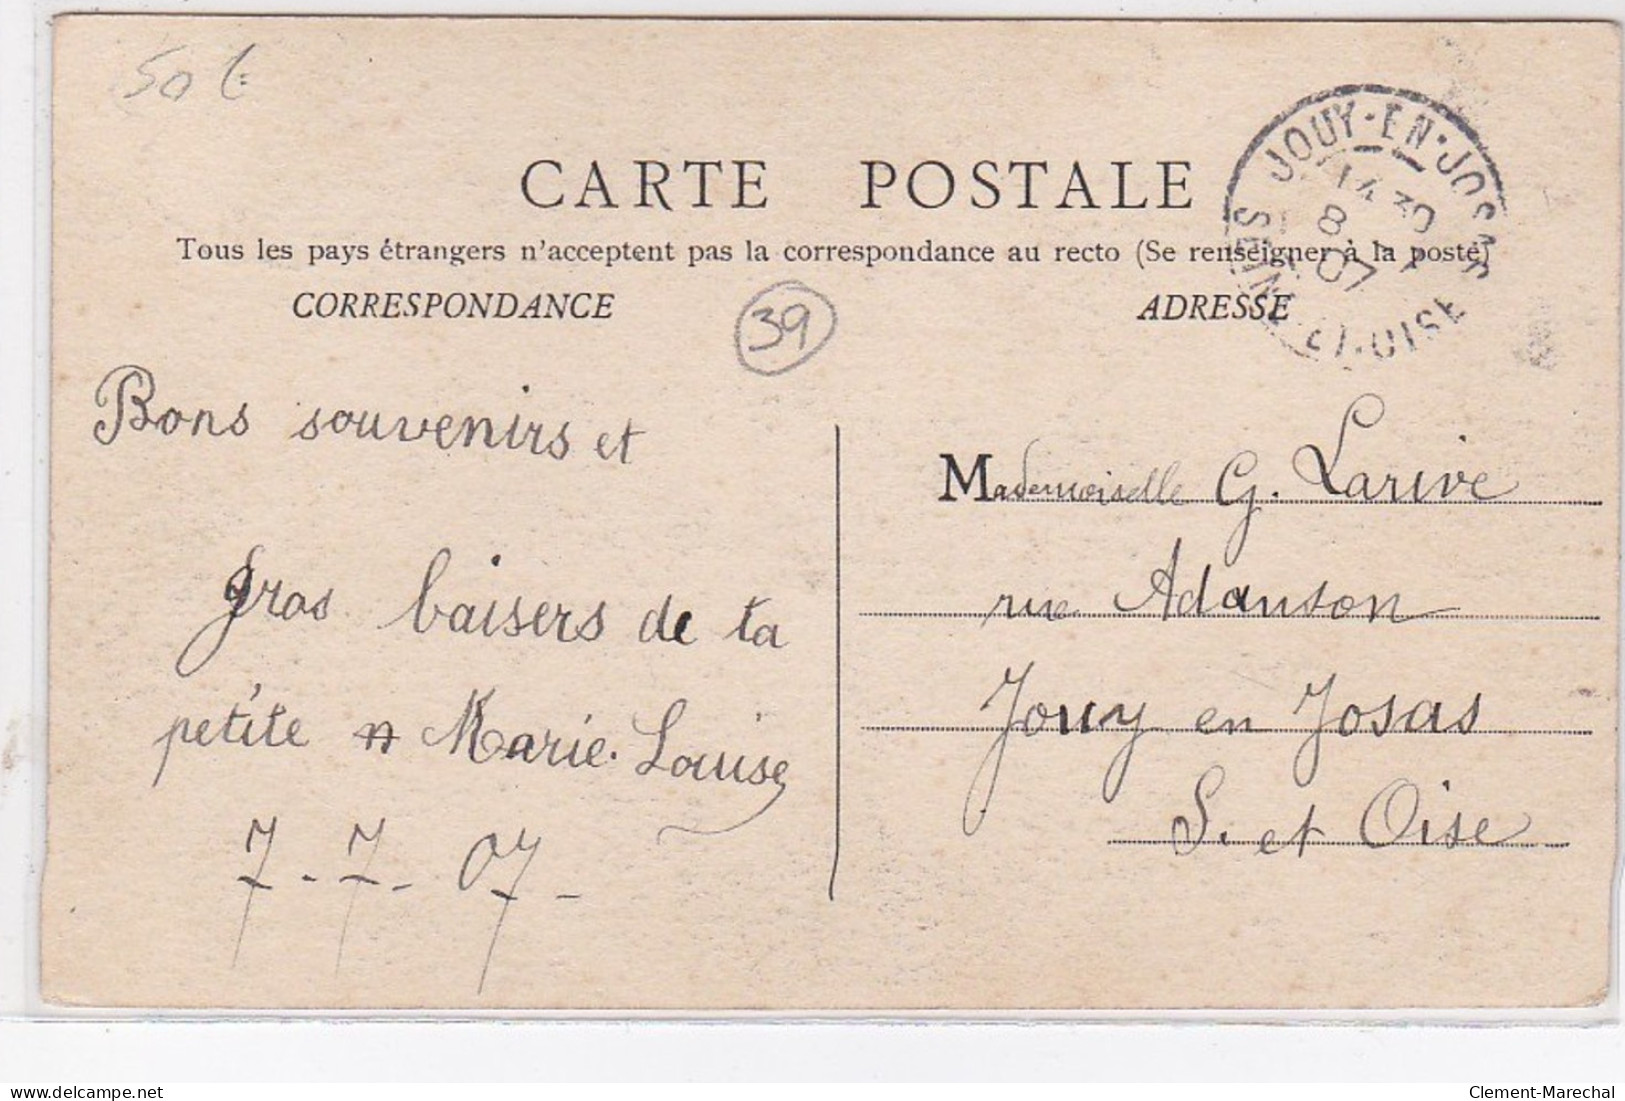 50 €
CARTE POSTALE
Tous les pays étrangers n'acceptent pas la correspondance au recto (Se renseigner à la poste)
CORRESPONDANCE
39
ADRESSE
JOUY-EN-JOSAS
14 30
8
07
SEINE-ET-OISE
Bons souvenirs et
Gros baisers de ta
petite Marie-Louise
7-7-07-
Mademoiselle G. Larive
rue Adanson
Jouy en Josas
S. et Oise
delcampe.net
Clement-Marechal